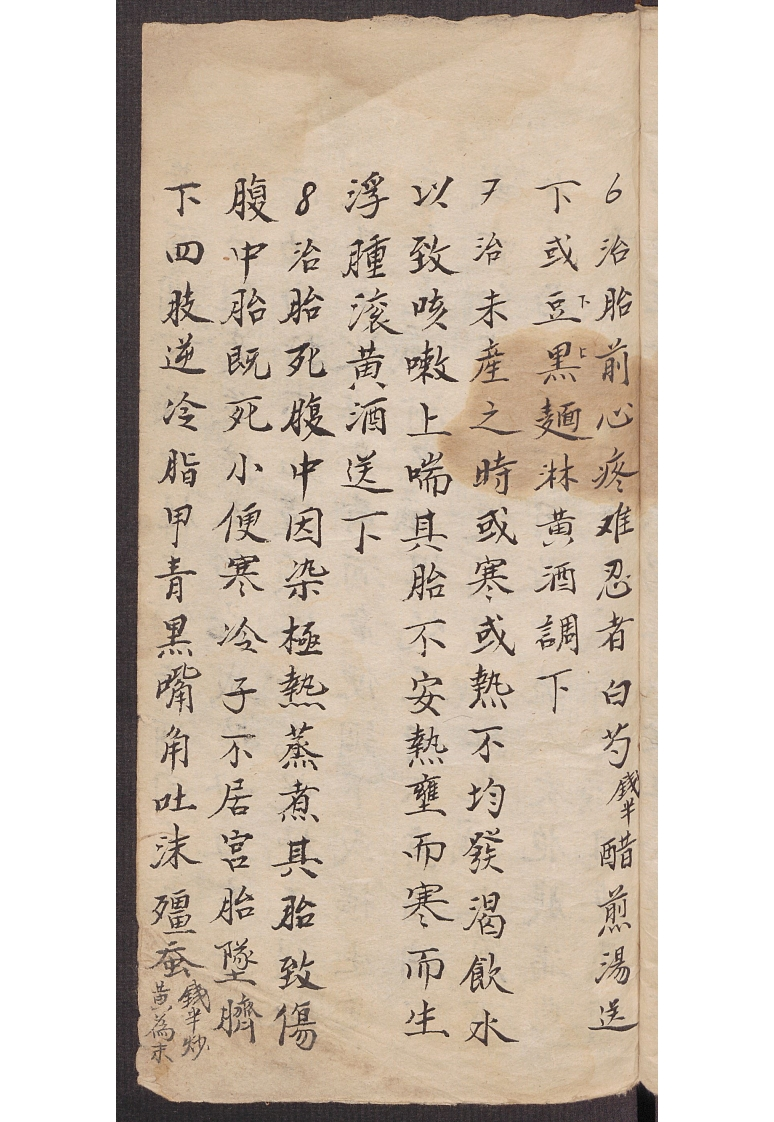 6治胎前心疼难忍者白芍錢半醋煎湯送
下或豆下黑上麵淋黄酒調下
7治未產之時或寒或熱不均發渴飲水
以致咳嗽上喘其胎不安熱壅而寒而生
浮腫滚黄酒送下
8治胎死腹中因染極熱蒸煮其胎致傷
腹中胎既死小便寒冷子不居宫胎墜臍
下四肢逆冷脂甲青黑嘴角吐沫殭蚕錢半炒黄為末